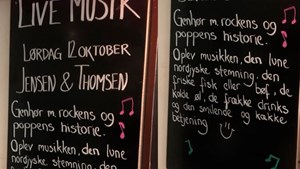 LIVE MUSIK
LØRDAG 12. OKTOBER
JENSEN & THOMSEN
Genhør m. rockens og
poppens historie.
Oplev musikken, den lune
nordjyske stemning, den
Genhør m. rockens og
poppens historie.
Oplev musikken, den lune
nordjyske stemning, den
friske fisk eller bøf, de
kolde øl, de frække drinks
og den smilende og kække
betjening